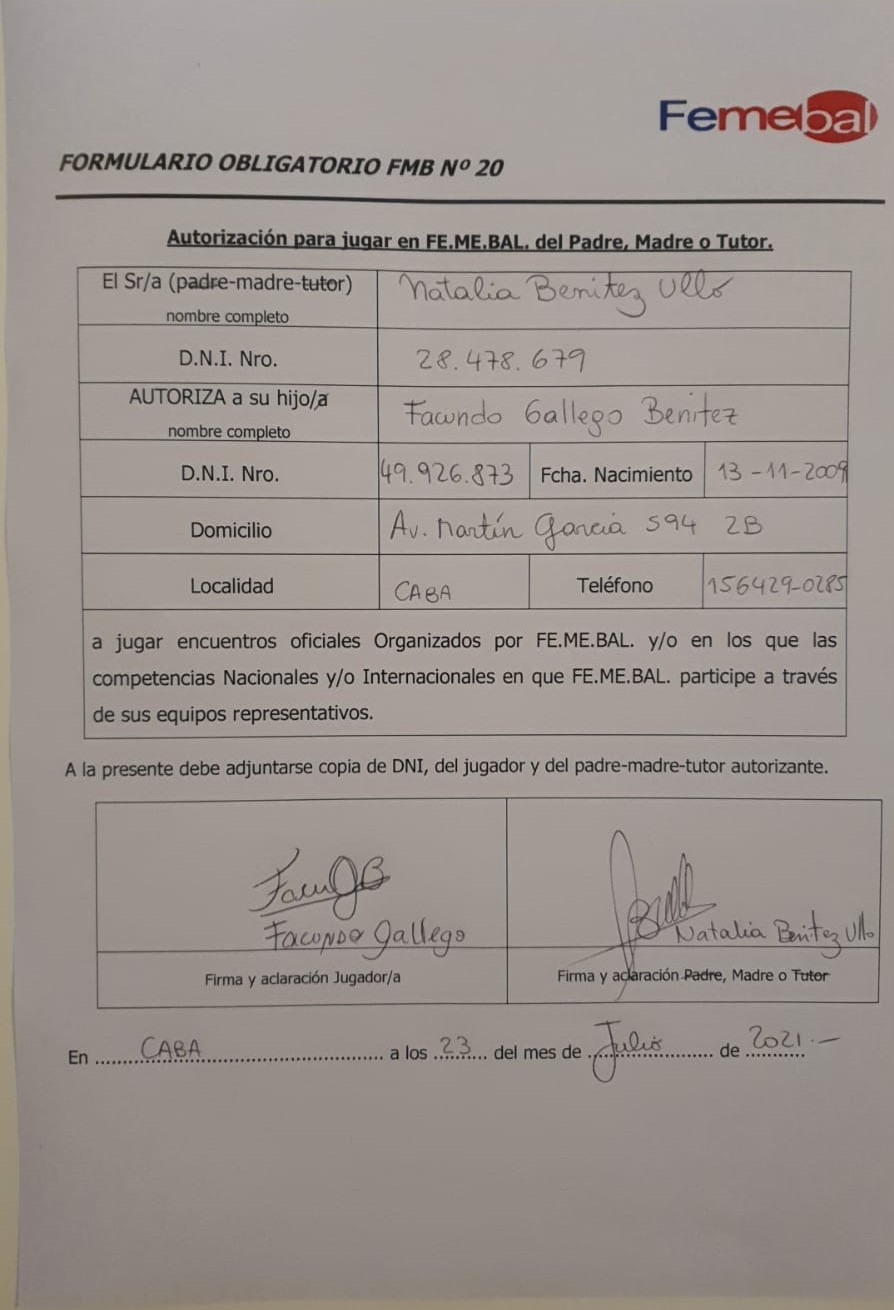 Femebal
FORMULARIO OBLIGATORIO FMB Nº 20
Autorización para jugar en FE.ME.BAL. del Padre, Madre o Tutor.
El Sr/a (padre-madre-tutor) Natalia Benitez Ullo
nombre completo
D.N.I. Nro. 28.478.679
AUTORIZA a su hijo/a Facundo Gallego Benitez
nombre completo
D.N.I. Nro. 49.926.873 Fcha. Nacimiento 13-11-2009
Domicilio Av. Martín García 594 2B
Localidad CABA Teléfono 156429-0285
a jugar encuentros oficiales Organizados por FE.ME.BAL. y/o en los que las
competencias Nacionales y/o Internacionales en que FE.ME.BAL. participe a través
de sus equipos representativos.
A la presente debe adjuntarse copia de DNI, del jugador y del padre-madre-tutor autorizante.
FacuGB
Facundo Gallego Natalia Benitez Ullo
Firma y aclaración Jugador/a Firma y aclaración Padre, Madre o Tutor
En CABA a los 23 del mes de Julio de 2021.-